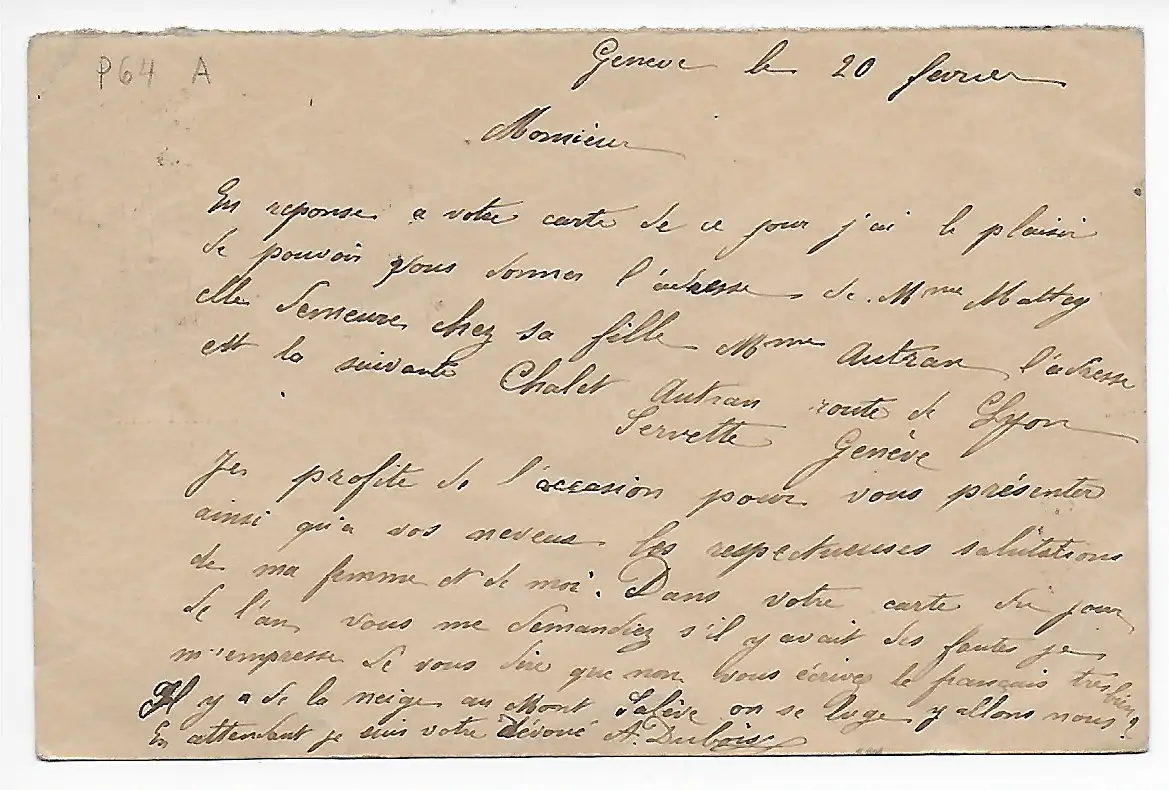 P64 A
Geneve le 20 fevrier
Monsieur
En reponse a votre carte de ce jour j'ai le plaisir
de pouvoir vous donner l'adresse de Mme Mattey
elle demeure chez sa fille Mme Autran l'adresse
est la suivante Chalet Autran route de Lyon
Servette Genève
Je profite de l'occasion pour vous présenter
ainsi qu'a vos neveus les respectueuses salutations
de ma femme et de moi. Dans votre carte du jour
de l'an vous me demandiez s'il y avait des fautes je
m'empresse de vous dire que non vous écrivez le français très bien
Il y a de la neige au Mont Salève on se luge y allons nous?
En attendant je suis votre dévoué A. Dubois